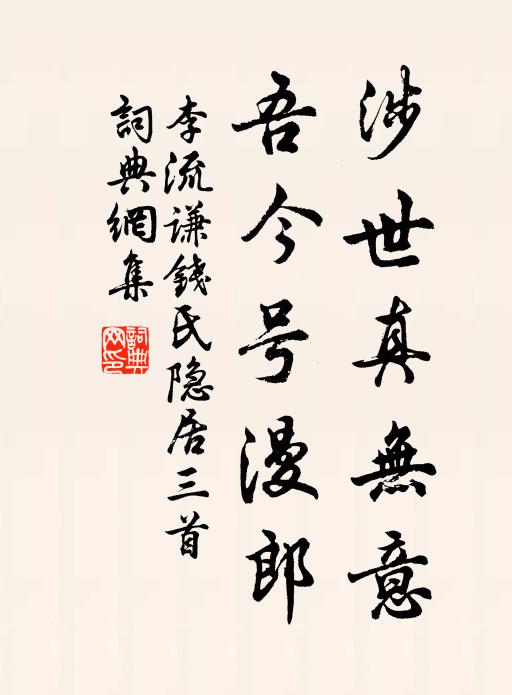 涉世真無意
吾今号漫郎
李流谦錢氏隐居三首
詞典網集
詞典网印